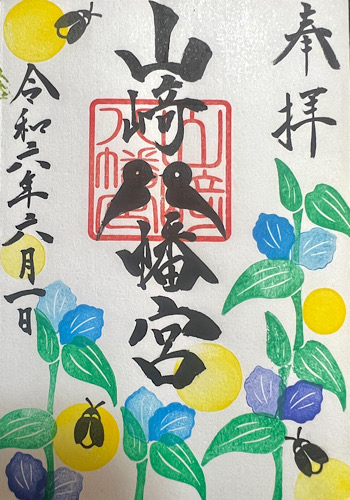 奉拝
山﨑八幡宮
令和六年六月一日